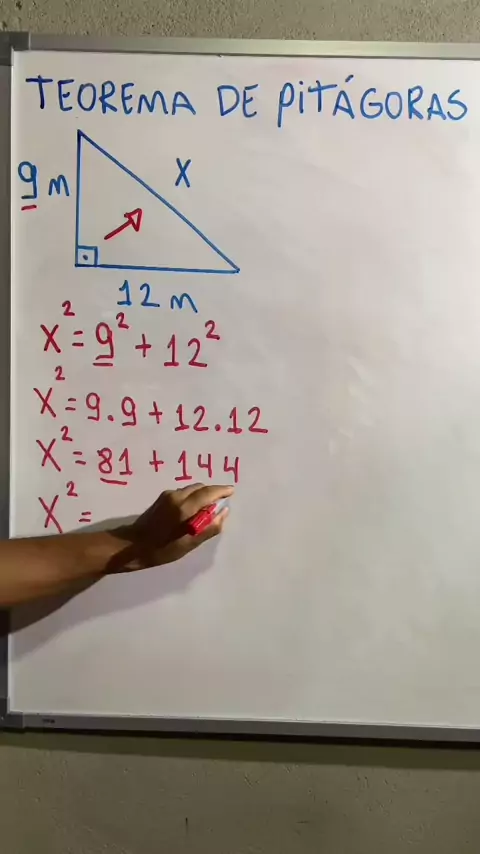 TEOREMA DE PITÁGORAS
9 m
X
12 m
X² = 9² + 12²
X² = 9.9 + 12.12
X² = 81 + 144
X² =